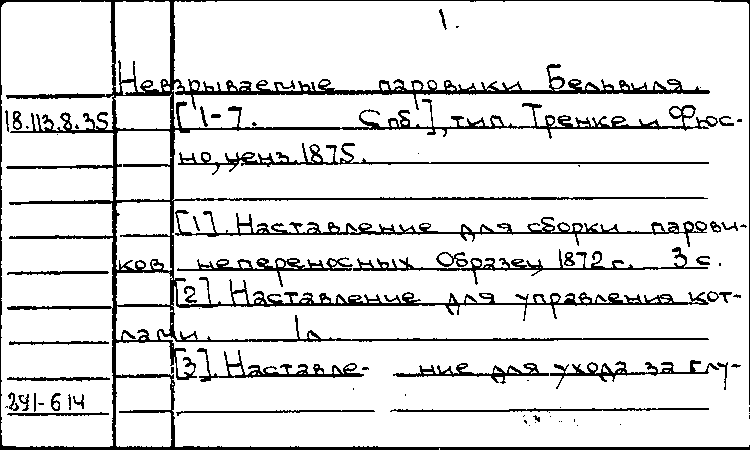 1.
Невзрываемые паровики Бельвиля.
18.113.8.35 [1-7. Спб.], тип. Тренке и Фюс-
но, ценз. 1875.
[1]. Наставление для сборки парови-
ков непереносных. Образец 1872 г. 3 с.
[2]. Наставление для управления кот-
лами. 1 л
[3]. Наставле- ние для ухода за глу-
291-614